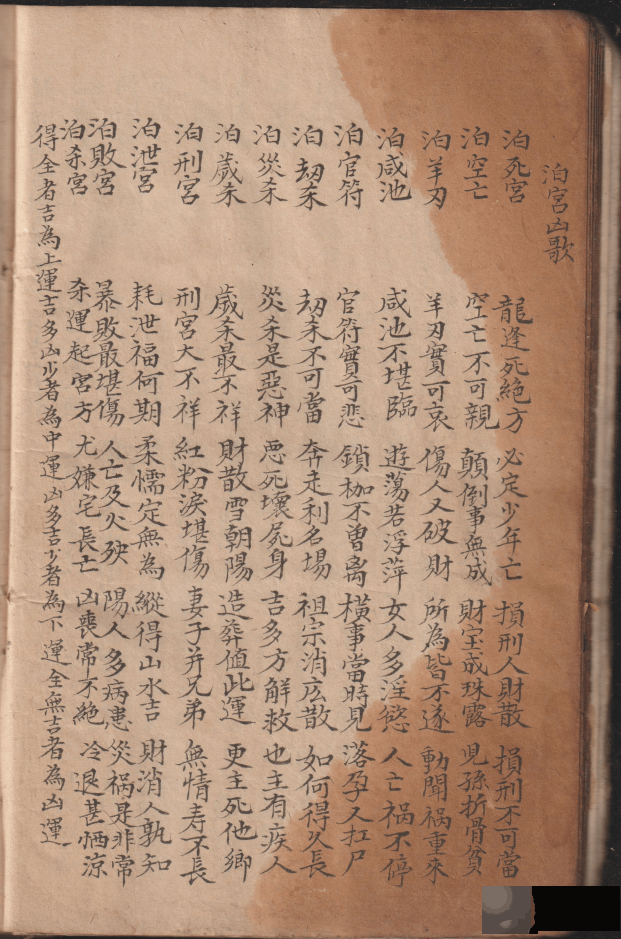 泊宮凶歌
泊死宮 龍逢死絕方 必定少年亡 損刑人財散 損刑不可當
泊空亡 空亡不可親 顛倒事無成 財宝成珠露 児孫折骨貧
泊羊刃 羊刃實可哀 傷人又破財 所為皆不遂 動聞禍重來
泊咸池 咸池不堪臨 遊蕩若浮萍 女人多淫慾 人亡禍不停
泊官符 官符實可悲 鎖枷不曾离 橫事當時見 落孕又扛尸
泊刼杀 刼杀不可當 奔走利名場 祖宗消広散 如何得久長
泊災杀 災杀是惡神 悪死壞屍身 吉多方解救 也主有疾人
泊歲杀 歲杀最不祥 財散雪朝陽 造葬值此運 更主死他鄉
泊刑宮 刑宮大不祥 紅粉淚堪傷 妻子并兄弟 無情寿不長
泊泄宮 耗泄福何期 柔懦定無為 縱得山水吉 財消人孰知
泊敗宮 暴敗最堪傷 人亡及火殃 陽人多病患 災禍是非常
泊杀宮 杀運起宮方 尤嫌宅長亡 凶喪常不絶 冷退甚恓涼
得全者吉為上運吉多凶少者為中運凶多吉少者為下運全無吉者為凶運